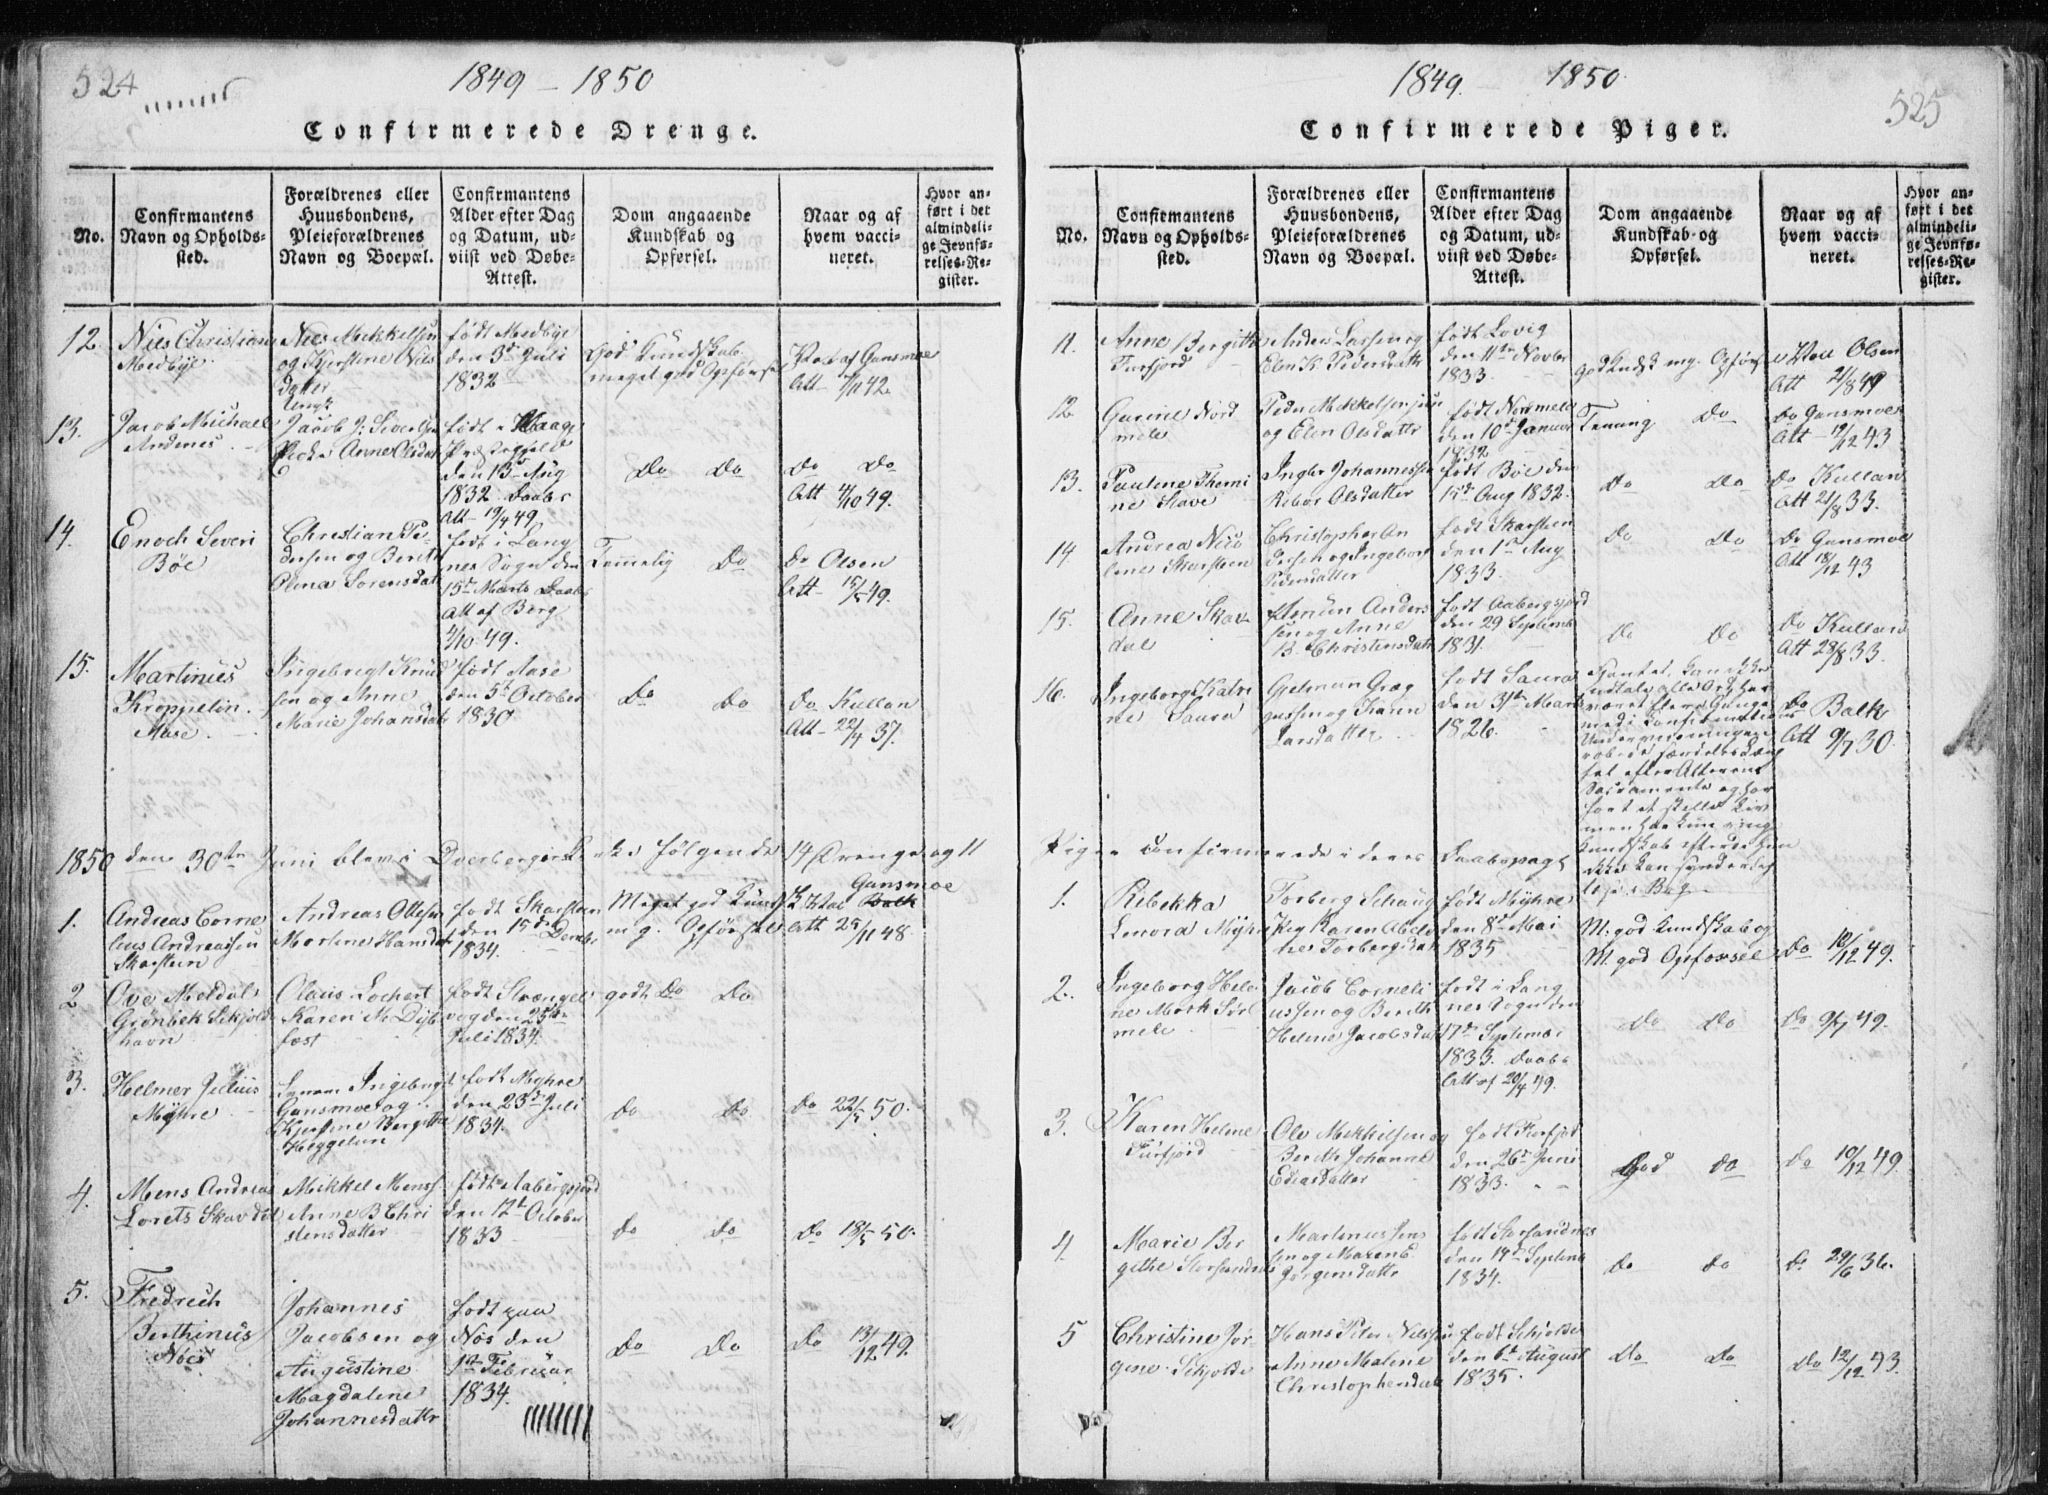 524
1849 – 1850
Confirmerede Drenge.
No.
Confirmantens
Navn og Opholds-
sted.
Forældrenes eller
Huusbondens,
Pleieforældrenes
Navn og Boepæl.
Confirmantens
Alder efter Dag
og Datum, ud-
viist ved Døbe-
Attest.
Dom angaaende
Kundskab og
Opførsel.
Naar og af
hvem vacci-
neret.
Hvor an-
ført i det
almindeli-
ge Jevnfø-
relses-Re-
gister.
12.
Niels Christian
Medbye
Niels Mekkelsen
og Kjerstine Niels
datter
født Medbye
den 3d Juli
1832
God Kundskab
meget god Opførsel
Vac af Gansmoe
Att 42
13.
Jacob Michael
Andenes
Jacob J: Sivertsen
Anne Olsdatt
født i Haags
Præstegjeld
den 13d Aug
1832 Daabs
Att 19/4 49
Do Do
Do Do
Att 4/10 49.
14.
Enoch Severi
Böe
Christian Pe-
dersen og Berith
Olena Sorensdat
født i Lang
nes Sogn den
15d Marts Daabs
Att af Berg
4/10 49.
Temmelig Do
Do Olsen
Att 15/5 49.
15.
Martinus
Kroppelin
Aase
Ingebregt Knud
sen og Anne
Marie Johansdat
født Aase
den 5d October
1830
Do Do
Do Kullan
Att 22/4 37.
1850 den 30te Juni blev i Dverbergs Kirke følgende 14 Drenge og 11
1.
Andreas Corne
lius Andreassen
Skarstein
Andreas Ottesen
Martine Hansdat
født Skarsteen
den 15d Decbr
1834.
Meget god Kundsk
m g. Opførsel
Vac Gansmoe
Att 25/11 48
2
Ove Meldal
Grönbek Skjolde
havn
Claus Lochert
Karen M Dyb
fest
født Strængel
vog den 25de
Juli 1834
godt Do Do
3.
Helmer Julius
Myhre
Ingebrigt
Gansmoe og
Kjerstine Bergitte
Heggelun
født Myhre
den 23d Juli
1834.
Do Do
Do 22/5 50.
4.
Mens Andreas
Lorets Skavdal
Mikkel Menss
Anne B Chri
stensdatter
født Aabergsjord
den 12t October
1833
Do Do
Do 18/5 50.
5.
Fredrich
Berthinus
Nöes
Johannes
Jacobsen og
Augustine
Magdaline
Johannesdattr
født paa
Nös den
1ste Februar
1834.
Do Do
Do 13/12 49
525
1849. 1850
Confirmerede Piger.
No.
Confirmantens
Navn og Opholds-
sted.
Forældrenes eller
Huusbondens,
Pleieforældrenes
Navn og Boepæl.
Confirmantens
Alder efter Dag
og Datum, ud-
viist ved Døbe-
Attest.
Dom angaaende
Kundskab og
Opførsel.
Naar og af
hvem vacci-
neret.
Hvor an-
ført i det
almindeli-
ge Jevnfø-
relses-Re-
gister.
11.
Anne Bergitte
Furfjord
Anders Larsen og
Elen K. Pedersdatt
født Lovig
den 11te Novbr
1833.
god Kundsk mg. Opførs
Vac Olsen
Att 21/8 49
12
Gurine Nord
mele
Peder Mekkelsen
og Elen Olsdattr
født Nordmele
den 10d Januar
1832
Do
Do Gansmoe
Att 19/12 43
13.
Pauline Themi
ne Stave
Ingbr Johannessen
Olsdatter
født Böe den
Aug 1832.
Do Do
Do Kullan
Att 21/8 33.
14
Andrea Nico
line Skarsteen
Christopher An
dersen og Ingeborg
Pedersdatter
født Skarsteen
den 1ste Aug
1833.
Do Do
Do Gansmoe
Att 18/12 43
15.
Anne Skav
dal
Amun Anders
sen og Anne
B. Christensdatt
født Aabergsjord
den 29 Septemb
1831.
Do Do
Do Kullan
Att 28/8 33.
16.
Ingeborg Katri
ne Saura
Gjelmun Græg
gussen og Karen
Larsdatter
født Saura
den 31te Marts
1826.
kan ikke
udtale alle Ord har
været flere Gange
med i Confirmations
Undervisningen
Alterens
Sacramente og har
ført et stille Liv
men har kun ringe
Kundskab efterdi hun
ikke kan synderlig
læse i Bog.
Do Balk
Att 9/7 30.
Piger Confirmerede i deres Daabspagt
1.
Rebekka
Lenora Myhre
Torberg Schaug
Karen Abelo
ne Torbergsdat
født Myhre
den 8d Mai
1835
M. god Kundskab og
M. god Opførsel
Do 18/12 49.
2.
Ingeborg Hele
ne Mork Sör
mele
Jacob Corneli
ussen og Berith
Helene Jacobsdatt
født i Lang
nes Sogn den
17de September
1833. Daabs
Att af 20/4 49.
Do Do
Do 9/7 49.
3.
Karen Helene
Furfjord
Ole Mekkelsen og
Berith Johanne
Ediasdatter
født Forfjord
den 26d Juni
1833.
God Do
Do 10/12 49.
4.
Marie Ber
githe Storsandnes
Martinus Jens
sen og Maren B
Jørgensdattr
født Storsandnes
den 14d Septemb
1834.
Do Do
Do 29/6 36.
5
Christine Jör
gine Skjolde
Hans Peter Nielsen
Anne Malene
Christophersdatt
født Skjolde
den 6d August
1835.
Do Do
Do 12/12 43.